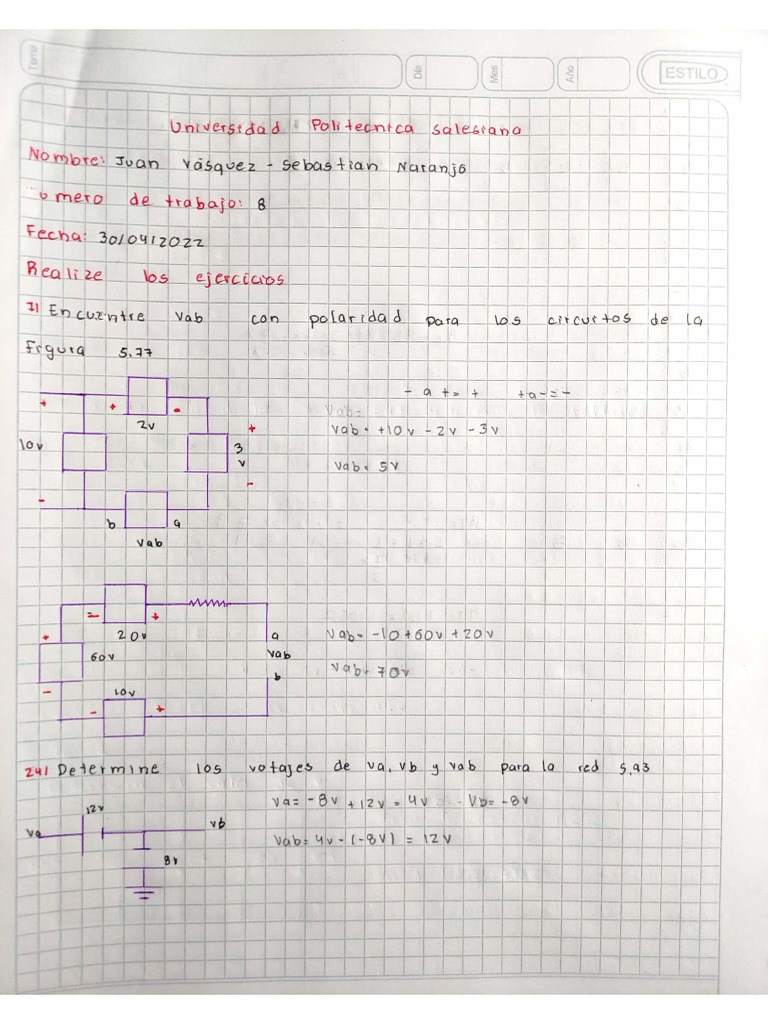 Tema
Día
Mes
Año
ESTILO
Universidad Politecnica Salesiana
Nombre: Juan Vásquez - Sebastian Naranjo
umero de trabajo: 8
Fecha: 30/04/2022
Realize los ejercicios
7) Encuentre Vab con polaridad para los circuitos de la
Figura 5.77
- a + = + + a - = -
+ + - +
2v
Vab=
Vab= +10v - 2v - 3v
10v
3
v
Vab= 5v
- -
b a
Vab
- +
20v
+
60v
-
a
Vab
b
Vab= -10+60v+20v
Vab= 70v
10v
- +
24) Determine los votajes de va, vb y vab para la red 5.93
12v
va
vb
8v
Va= -8v + 12v = 4v Vb= -8v
Vab= 4v - (-8v) = 12v